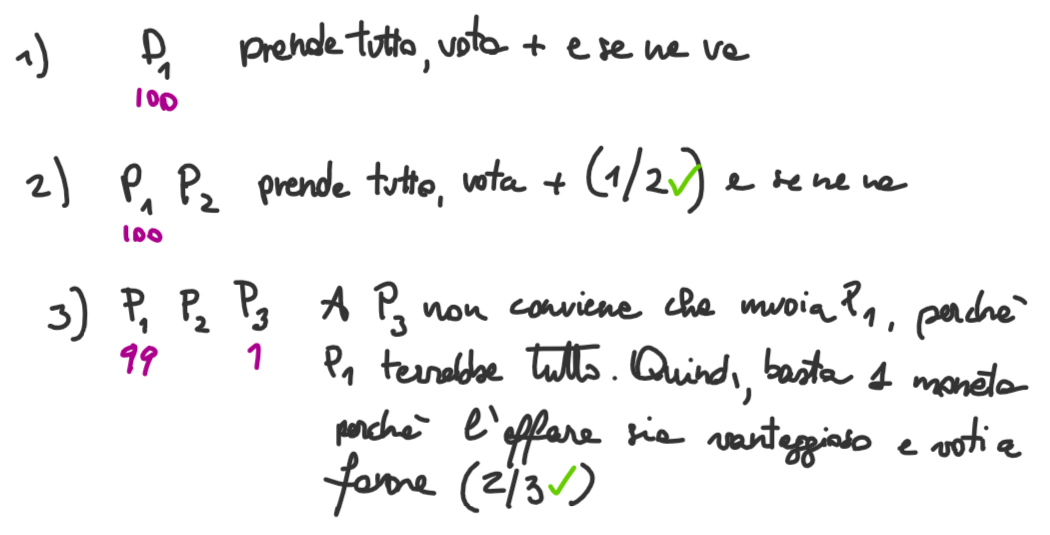 1) P₁ prende tutto, vota + e se ne va
100
2) P₁ P₂ prende tutto, vota + (1/2✓) e se ne va
100
3) P₁ P₂ P₃ A P₃ non conviene che muoia P₁, perchè
99 1 P₁ terrebbe tutto. Quindi, basta 1 moneta
perchè l'affare sia vantaggioso e voti a
favore (2/3✓)